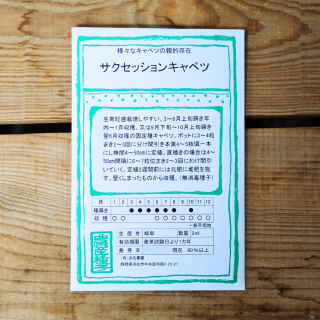 様々なキャベツの親的存在
サクセッションキャベツ
生育旺盛栽培しやすい。3〜8月上旬蒔き年
内〜1月収穫。又は9月下旬〜10月上旬蒔き
翌6月収穫の固定種キャベツ。ポットに3〜4粒
まき2〜3回に分け間引き本葉4〜5枚頃一本
にし株間4〜50㎝に定植。直播きの場合は4〜
50㎝間隔に6〜7粒位まき2〜3回にわけ間引
いていく。定植2週間前には元肥に堆肥を施
す。堅くしまったものから収穫。(無消毒種子)
月 1 2 3 4 5 6 7 8 9 10 11 12
種蒔き ● ● ● ● ● ● ● ●
収穫 ○ ○ ○ ○ ○ ○
一般平坦地
生産地 岐阜 数量 2ml
有効期限 発芽試験日より1カ年
発芽率 現在 80%以上
固定種
㈲浜名農園